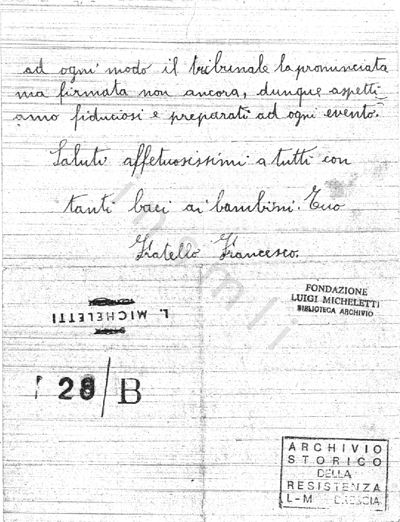 ad ogni modo il tribunale la pronunciata
ma firmata non ancora, dunque aspetti-
amo fiduciosi e preparati ad ogni evento.
Saluti affetuosissimi a tutti con
tanti baci ai bambini. Tuo
Fratello Francesco.
FONDAZIONE
LUIGI MICHELETTI
BIBLIOTECA ARCHIVIO
L. MICHELETTI
28/B
ARCHIVIO
STORICO
DELLA
RESISTENZA
L-M BRESCIA
insmli